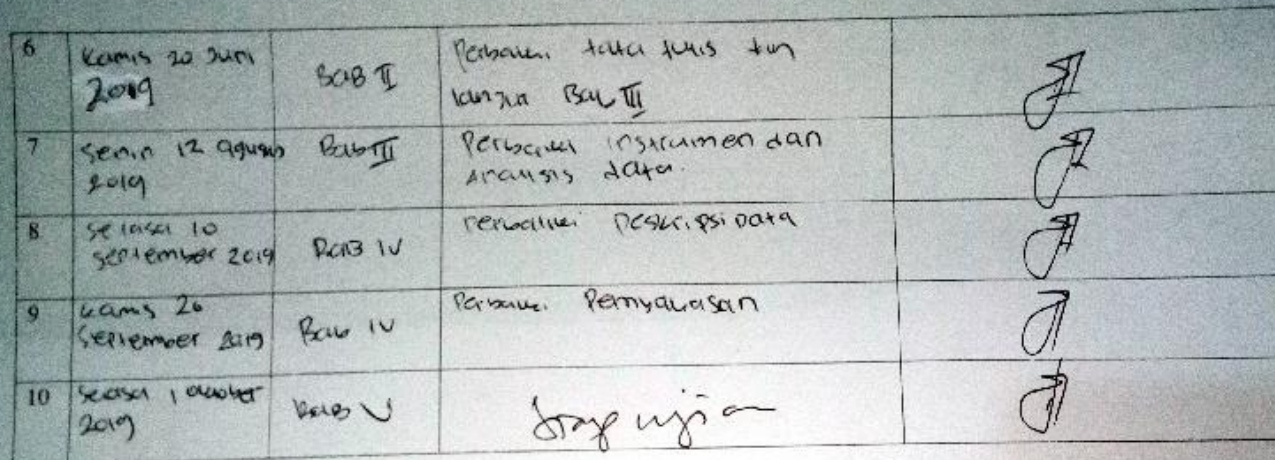 6
Kamis 20 Juni
2019
BAB II
Perbaiki tata tulis dan
lanjut Bab III
7
Senin 12 agustus
2019
Bab III
Perbaiki instrumen dan
Analisis data.
8
Selasa 10
September 2019
BAB IV
Perbaiki Deskripsi Data
9
Kamis 26
September 2019
Bab IV
Perbaiki Pembahasan
10
Selasa 1 oktober
2019
BAB V
Siap ujian